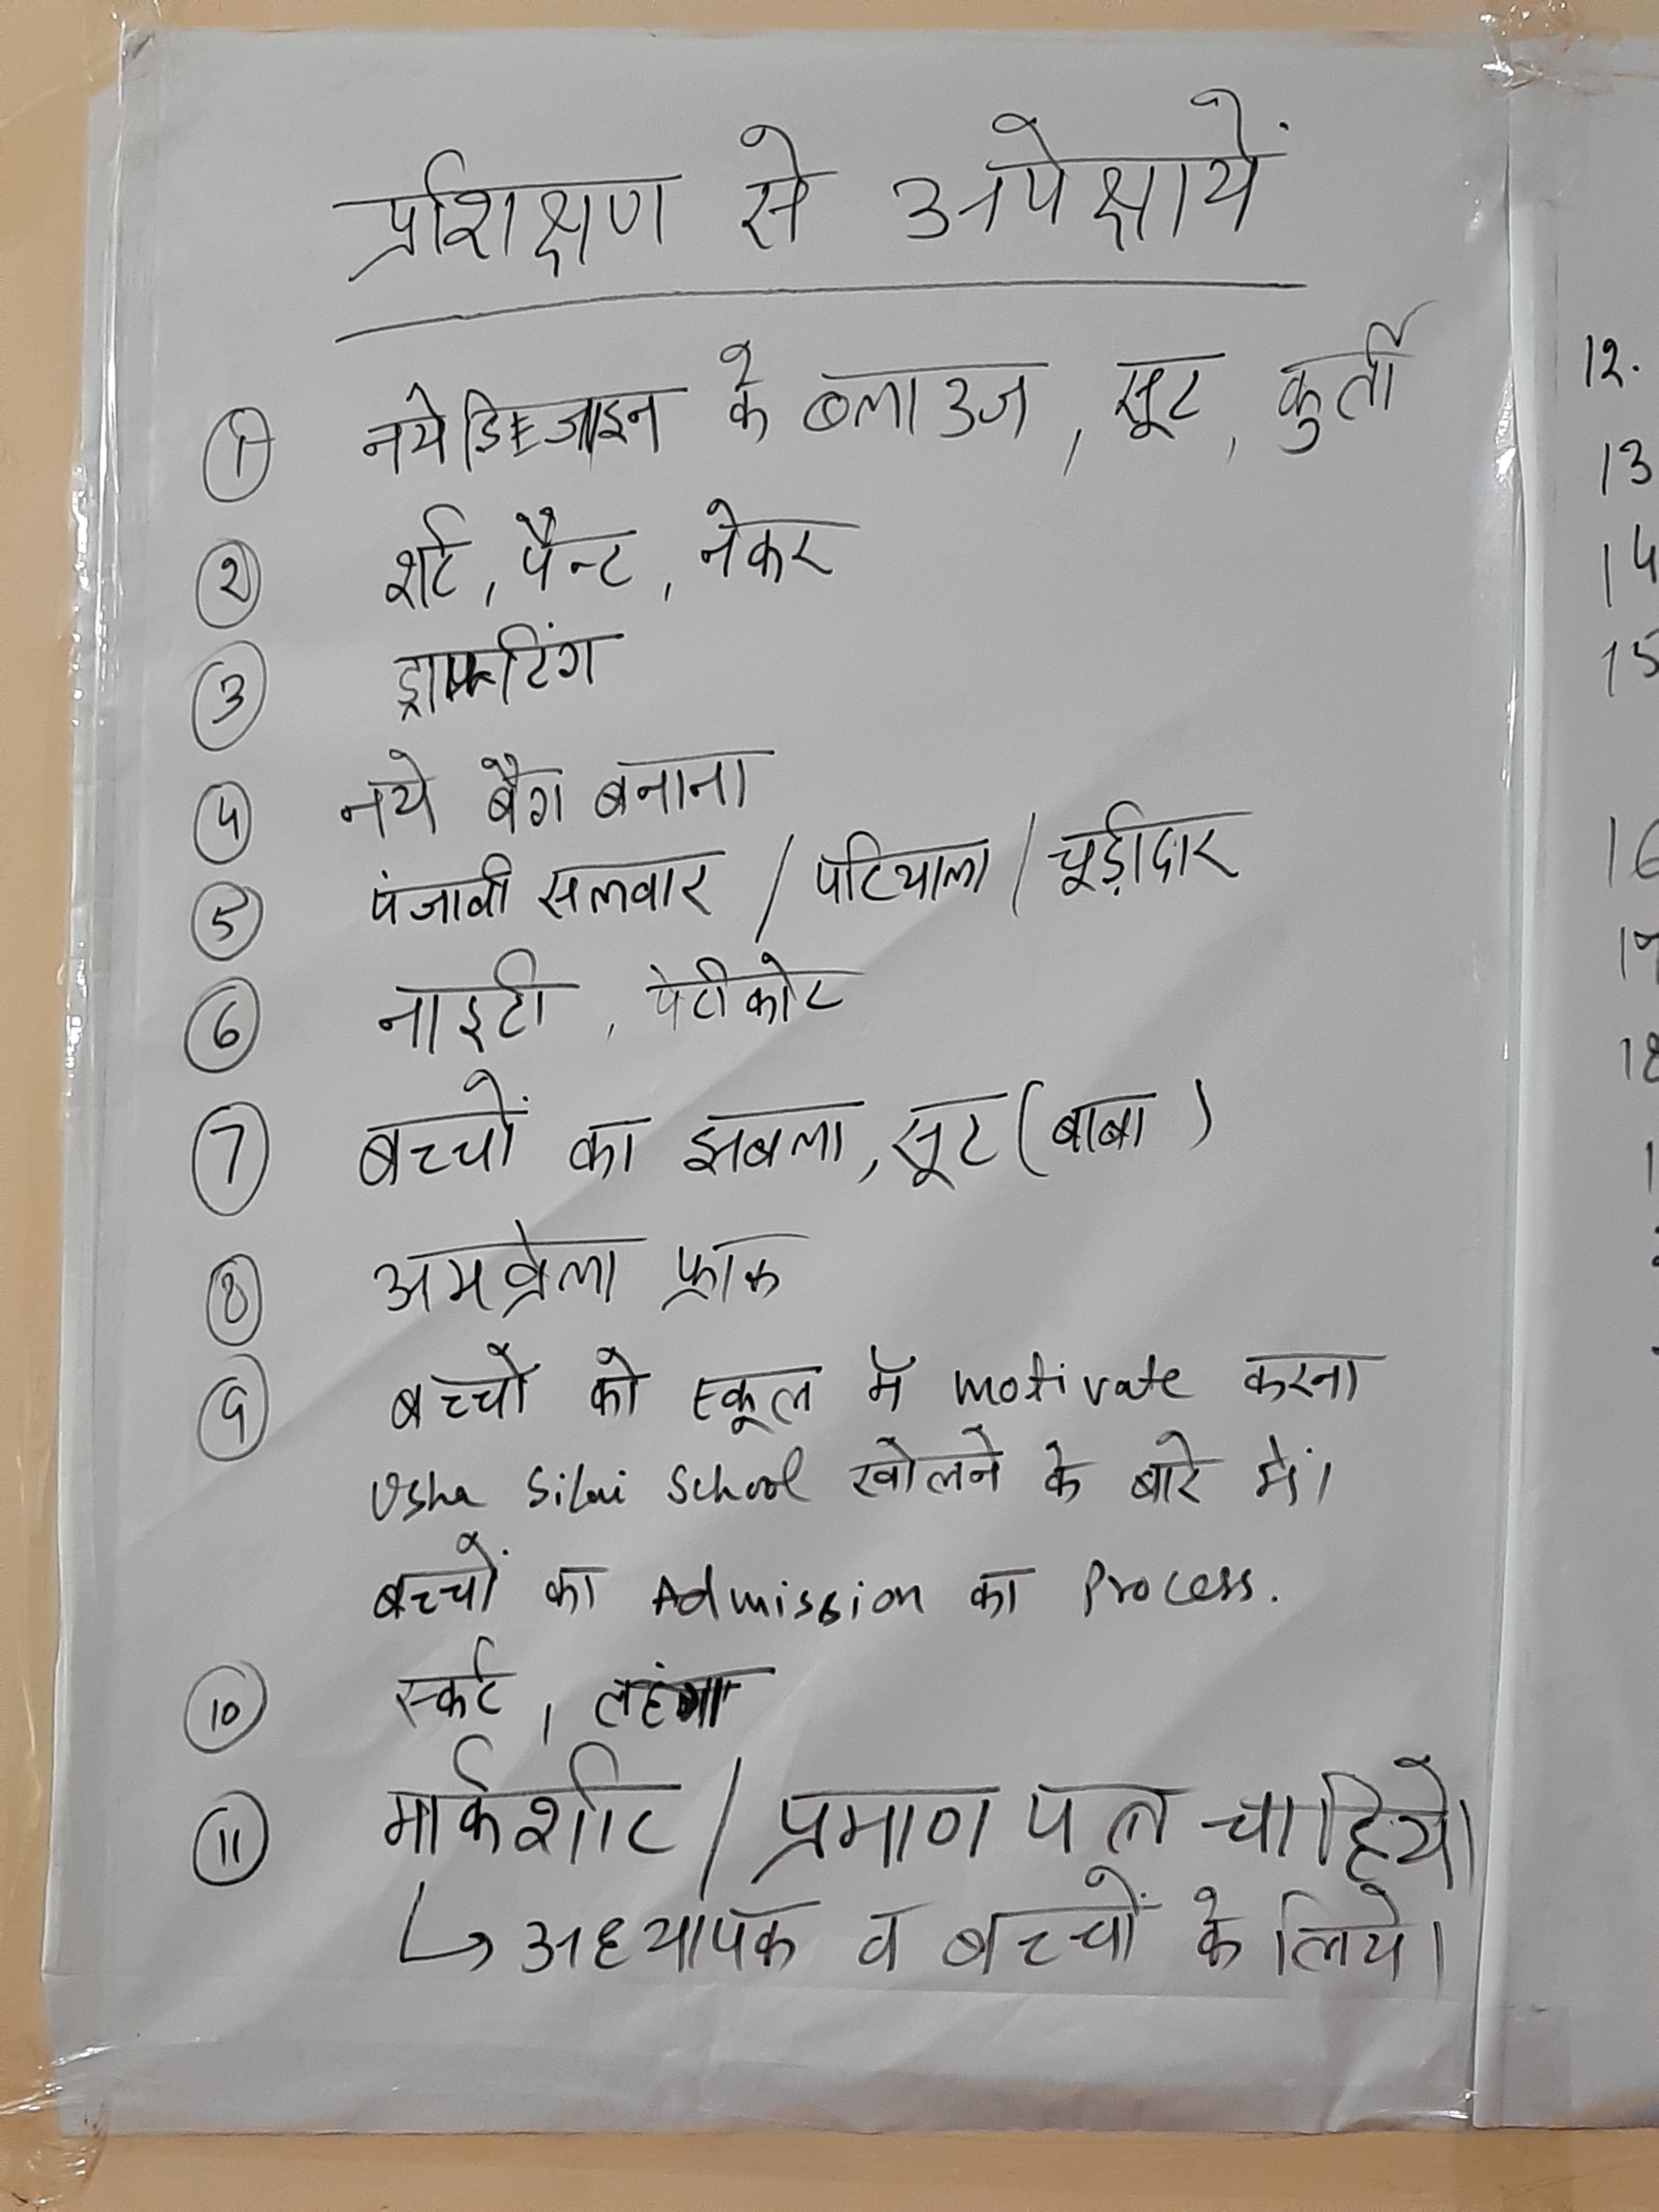 प्रशिक्षण से अपेक्षायें
① नये डिजाइन के ब्लाउज, सूट, कुर्ती
② शर्ट, पैन्ट, नेकर
③ ड्राफ्टिंग
④ नये बैग बनाना
⑤ पंजाबी सलवार / पटियाला / चूड़ीदार
⑥ नाइटी, पेटीकोट
⑦ बच्चों का झबला, सूट (बाबा)
⑧ अमब्रेला फ्राक
⑨ बच्चों को स्कूल में motivate करना
Usha Silai School खोलने के बारे में।
बच्चों का Admission का Process.
⑩ स्कर्ट, लहंगा
⑪ मार्कशीट / प्रमाण पत्र चाहिये।
↳ अध्यापक व बच्चों के लिये।
12.
13
14
15
16
17
18